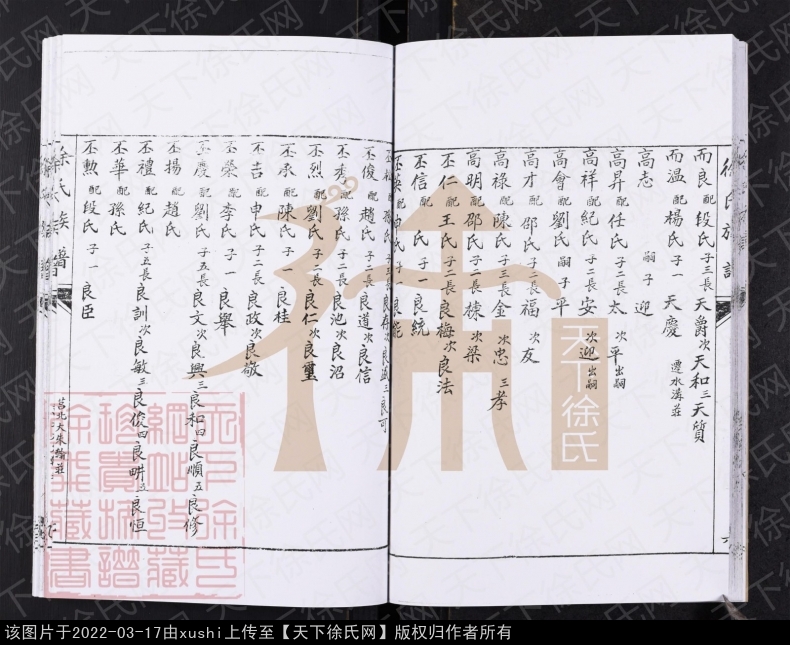 徐氏族譜
而良 配段氏 子三 長天爵 次天和 三天質
而溫 配楊氏 子一 天慶 遷水溝莊
高志 嗣子 迎
高昇 配任氏 子二 長太 次平出嗣
高祥 配紀氏 子二 長安 次迎出嗣
高會 配劉氏 嗣子 平
高才 配邵氏 子二 長福 次友
高祿 配陳氏 子三 長金 次忠 三孝
高明 配邵氏 子二 長棟 次梁
丕仁 配王氏 子二 長良梅 次良法
丕信 配 氏 子一 良統
配申氏 子一 良能
配孫氏 子三 長良存 次良 三良可
丕俊 配趙氏 子二 長良道 次良信
丕秀 配孫氏 子二 長良池 次良沼
丕烈 配劉氏 子二 長良仁 次良璽
丕承 配陳氏 子一 良桂
丕吉 配申氏 子二 長良政 次良敬
丕榮 配李氏 子一 良舉
丕慶 配劉氏 子五 長良文 次良興 三良和 四良順 五良修
丕揚 配趙氏
丕禮 配紀氏 子五 長良訓 次良敏 三良俊 四良畊 五良恒
丕華 配孫氏
丕勲 配段氏 子一 良臣
徐氏族譜
天下徐氏
天下徐氏网
该图片于2022-03-17由xushi上传至【天下徐氏网】版权归作者所有